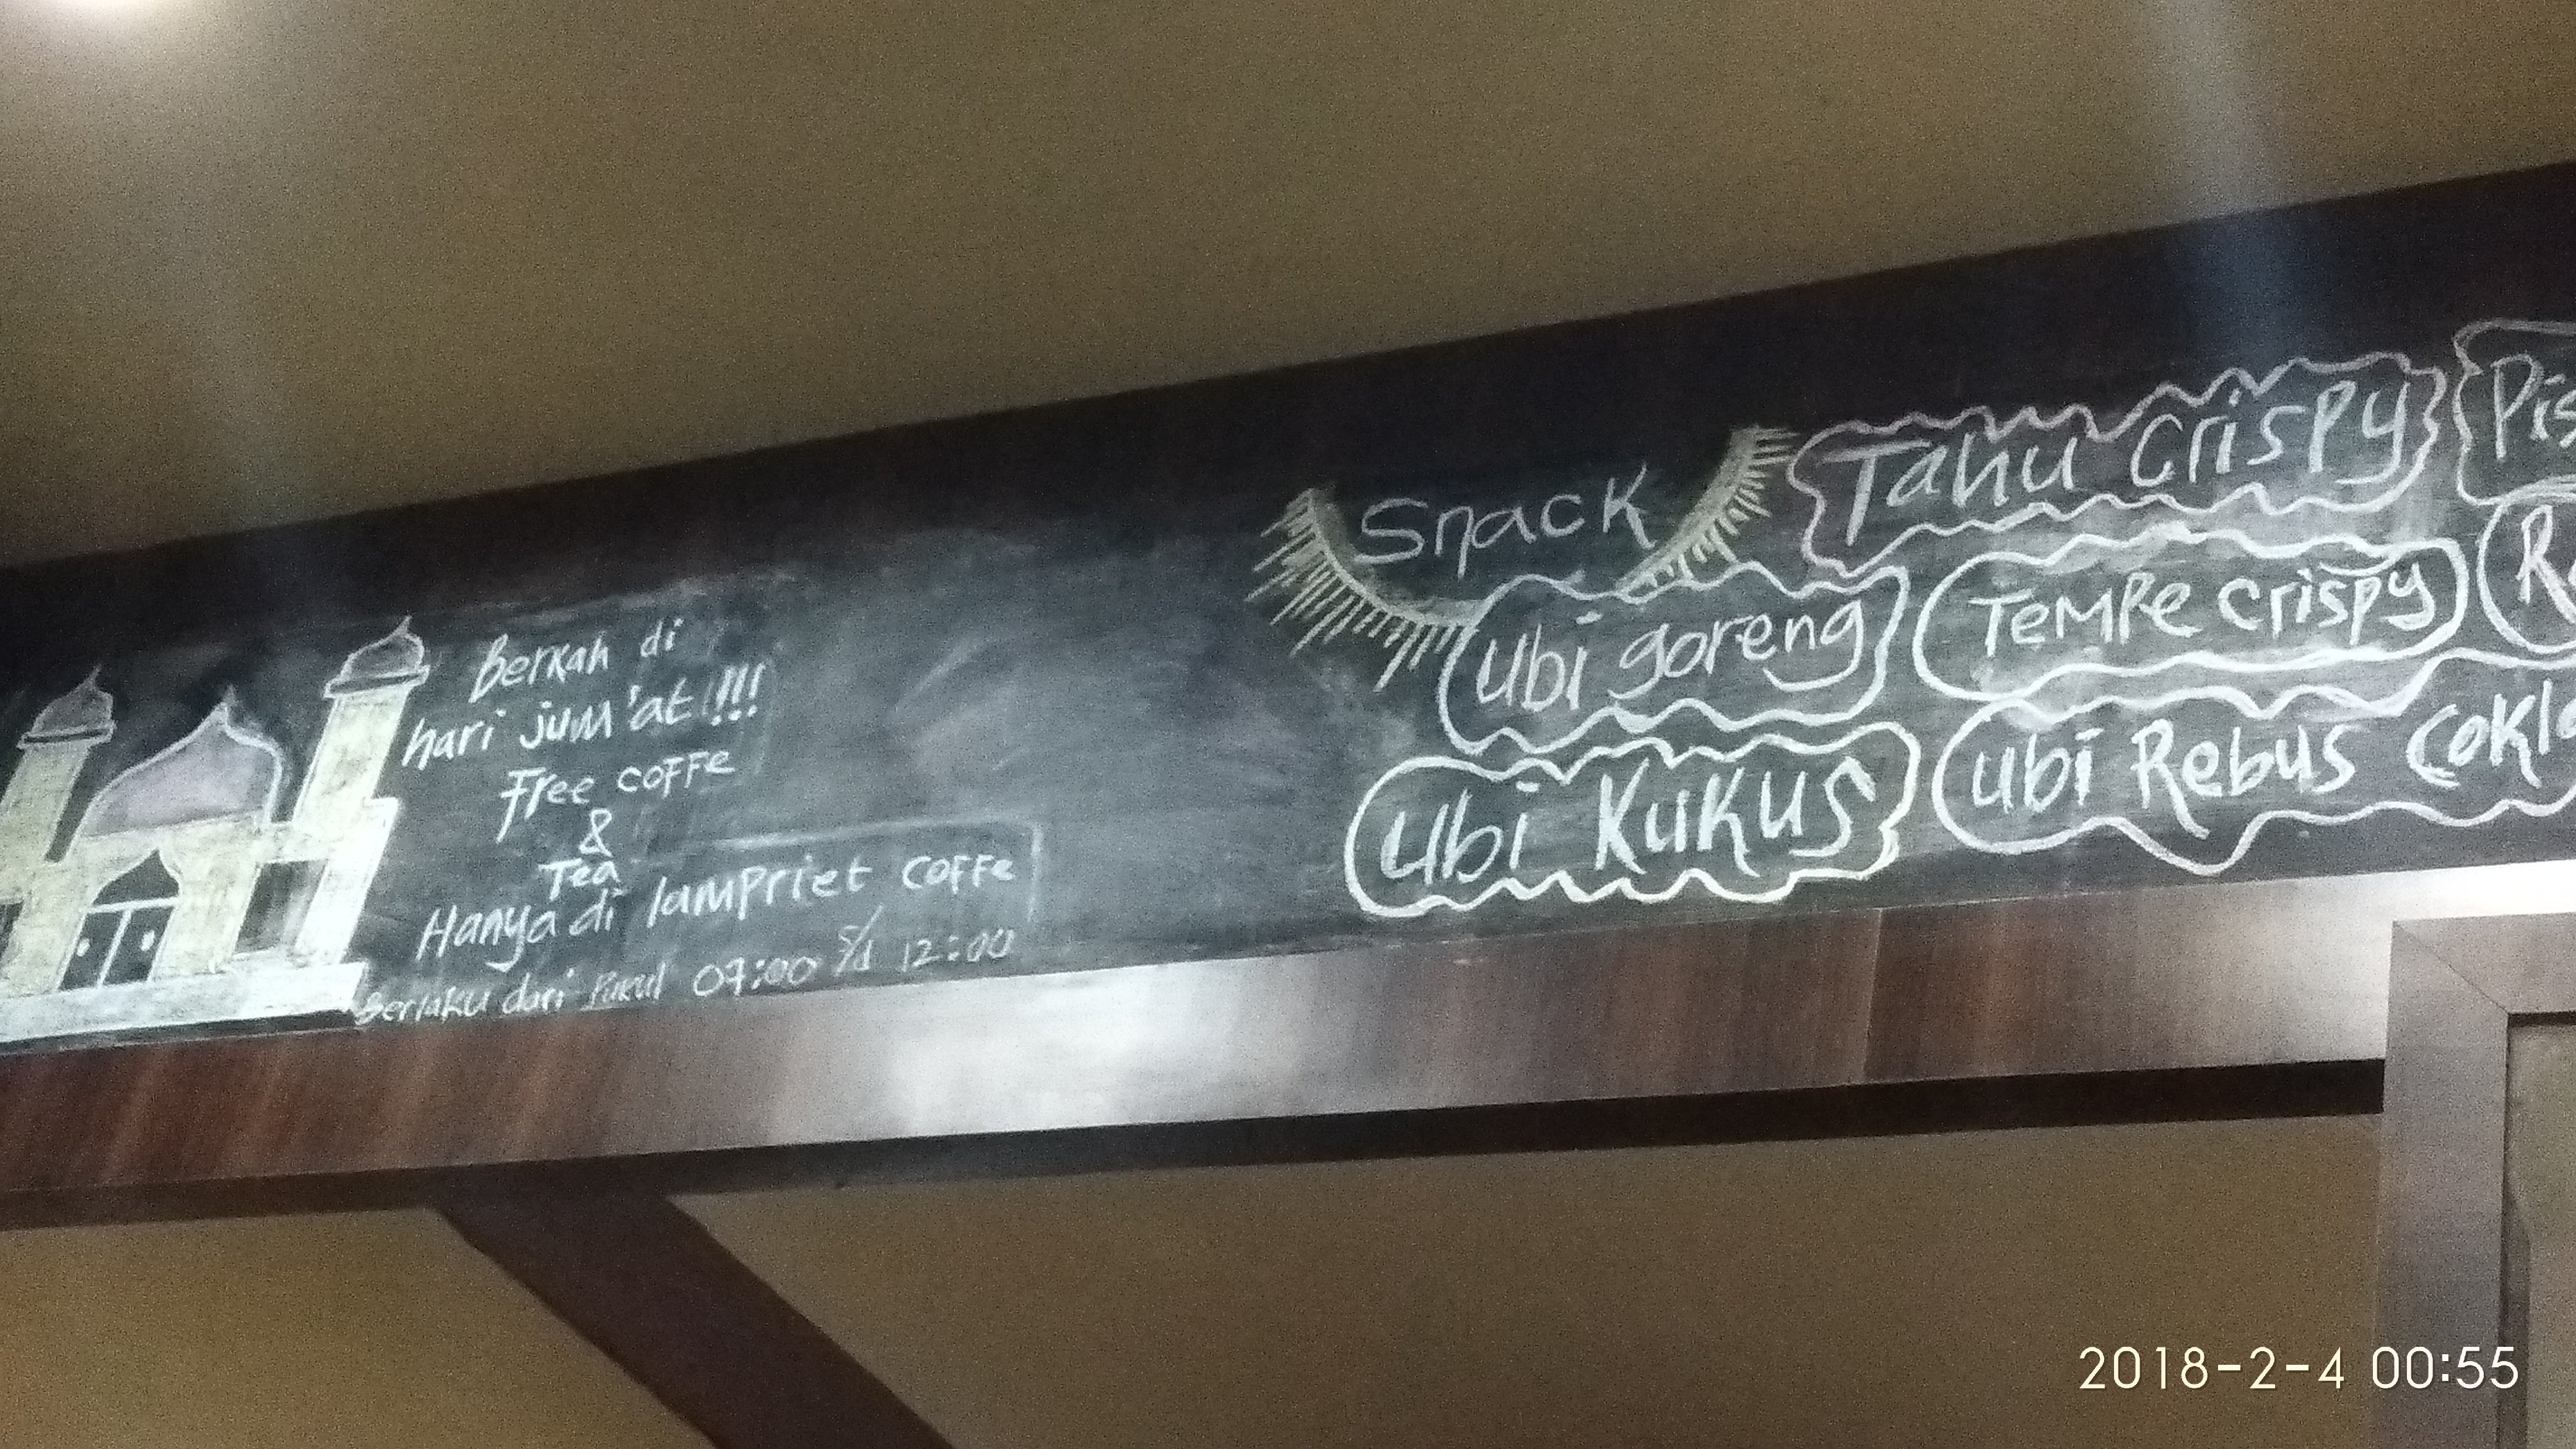 Berkah di
hari jum'at !!!!
Free coffe
&
Tea
Hanya di lampriet coffe
Berlaku dari Pukul 07:00 s/d 12:00
Snack
Tahu crispy
Ubi goreng
Tempe crispy
Ubi Kukus
Ubi Rebus
2018-2-4 00:55